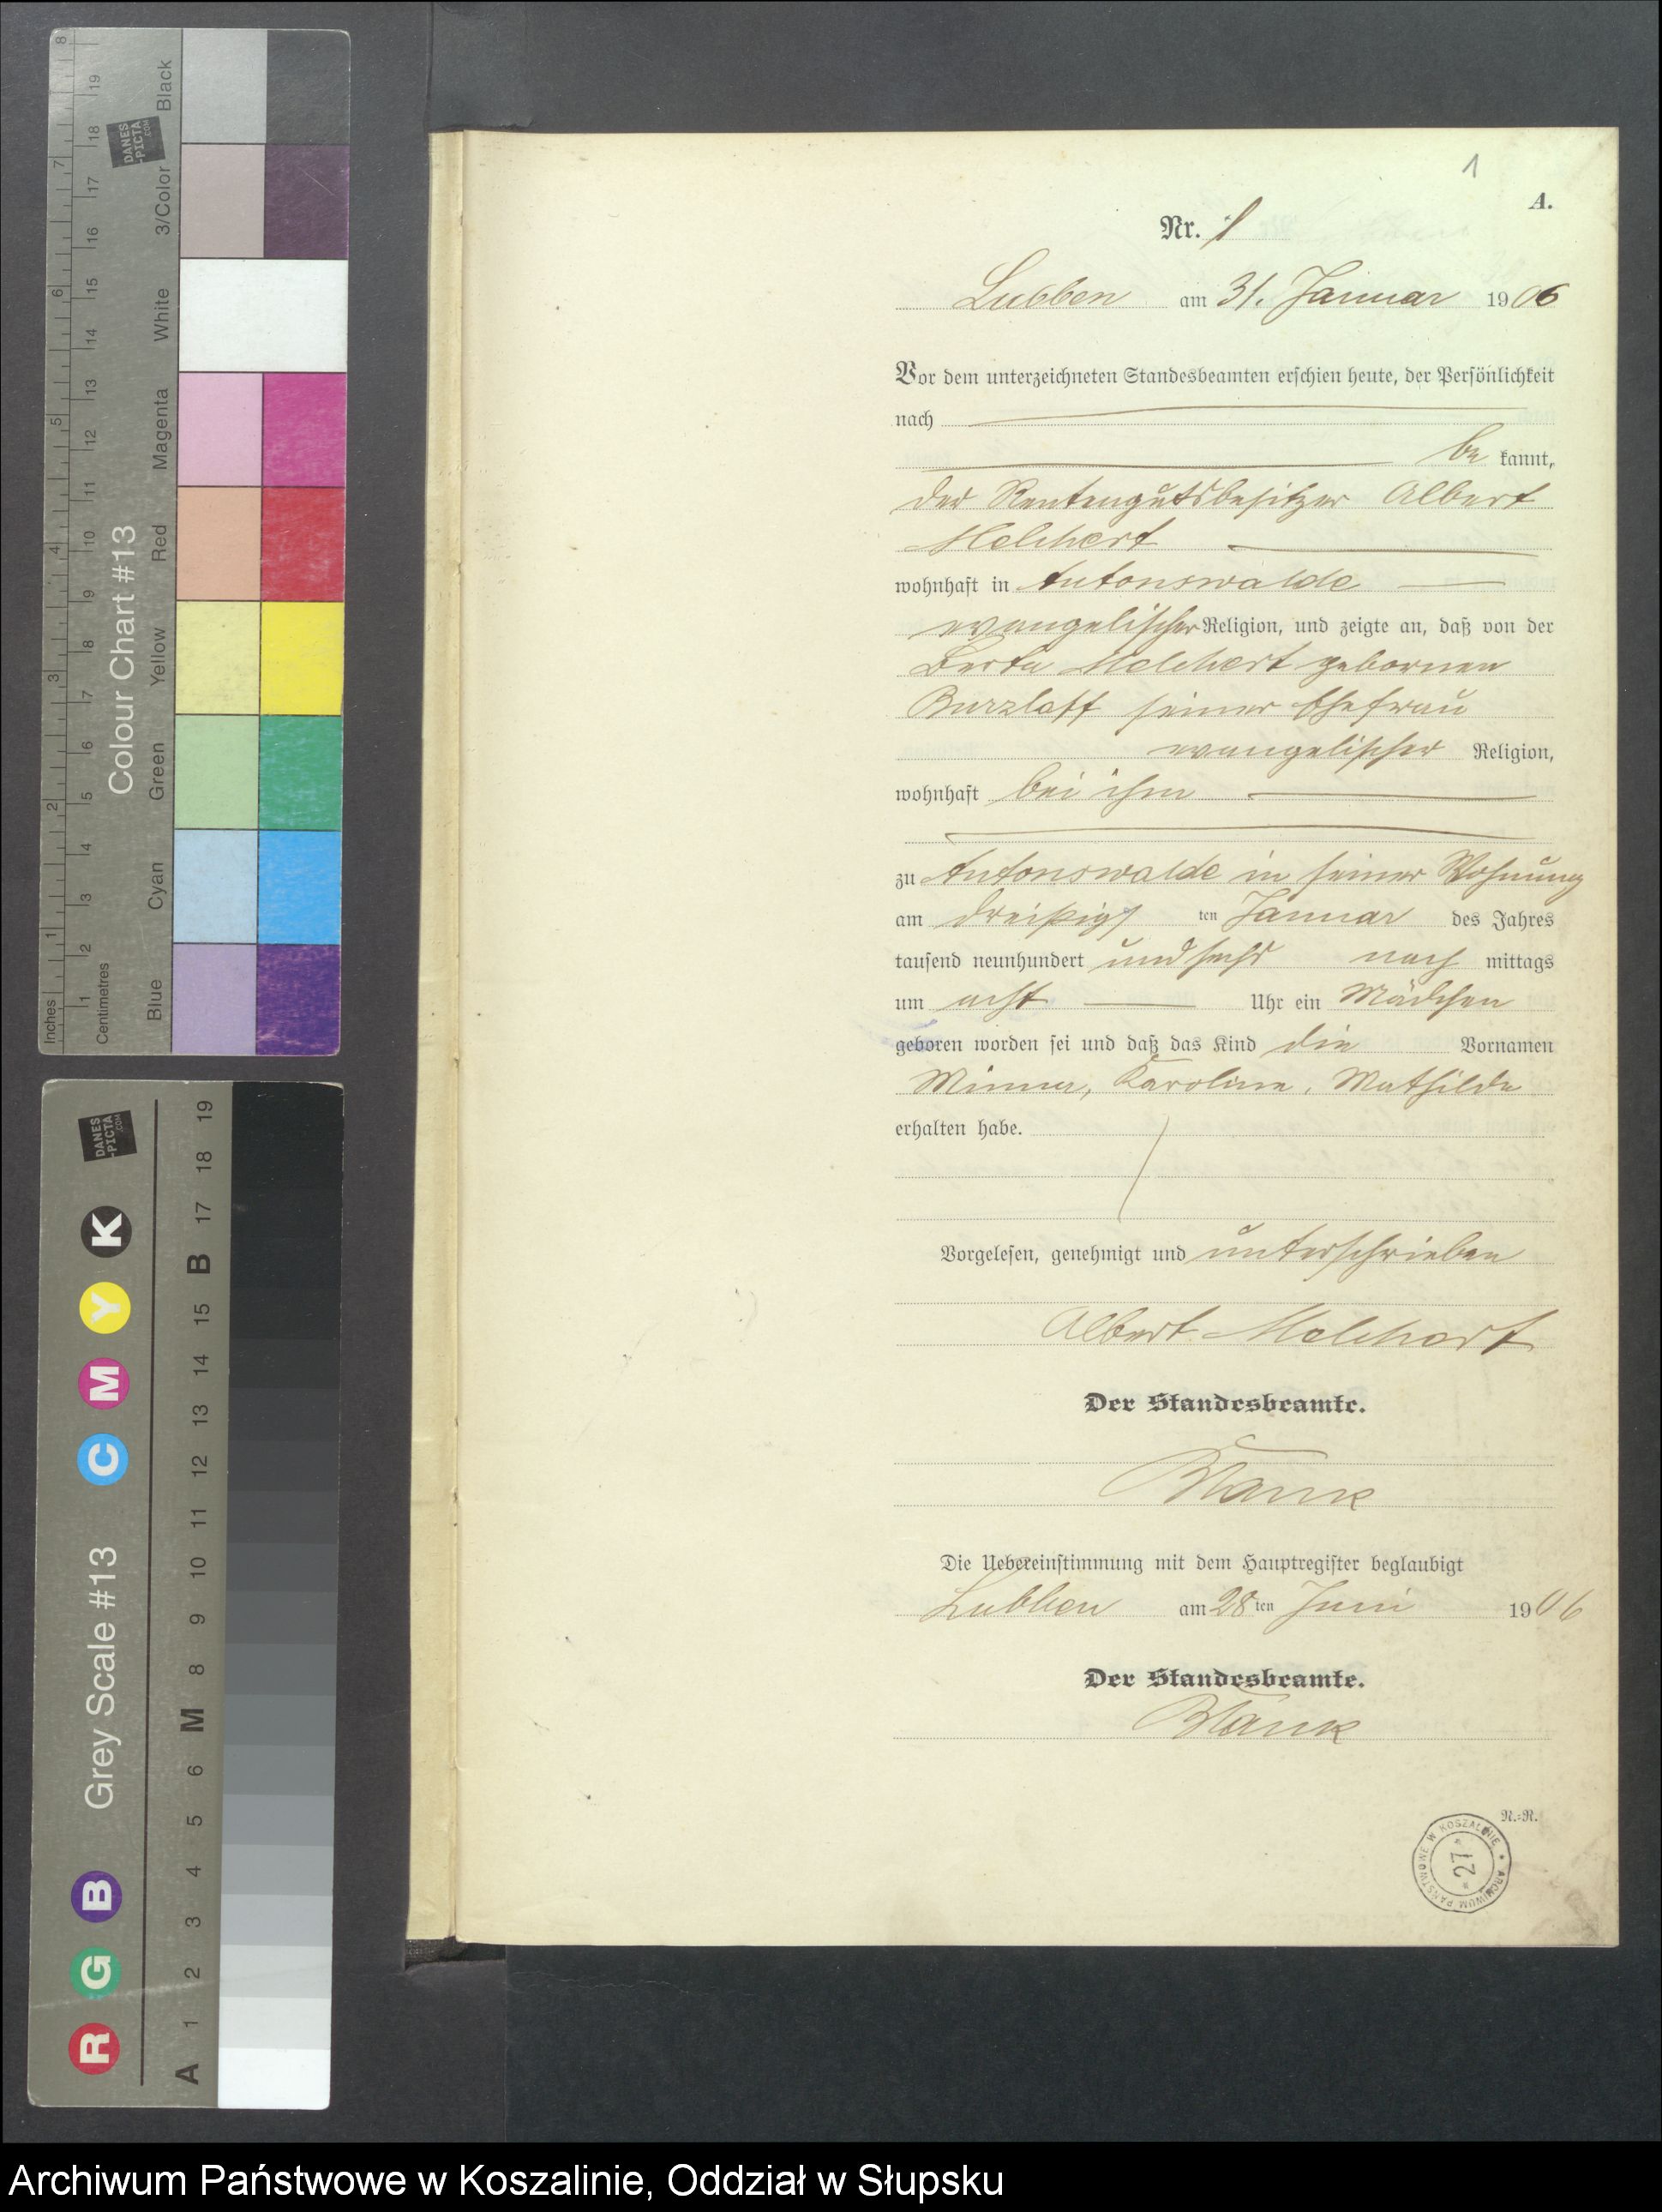 1
A.
Nr. 1
Lubben am 31. Januar 1906
Vor dem unterzeichneten Standesbeamten erschien heute, der Persönlichkeit
nach
be kannt,
der Rentengutsbesitzer Albert
Melchert
wohnhaft in Antonswalde
evangelischer Religion, und zeigte an, daß von der
Berta Melchert gebornen
Burzlaff seiner Ehefrau
evangelischer Religion,
wohnhaft bei ihm
zu Antonswalde in seiner Wohnung
am dreißigs ten Januar des Jahres
tausend neunhundert und sechs nach mittags
um acht Uhr ein Mädchen
geboren worden sei und daß das Kind die Vornamen
Minna, Karoline, Mathilde
erhalten habe.
Vorgelesen, genehmigt und unterschrieben
Albert Melchert
Der Standesbeamte.
Blank
Die Uebereinstimmung mit dem Hauptregister beglaubigt
Lubben am 28 ten Juni 1906
Der Standesbeamte.
Blank
R.-R.
ARCHIWUM PAŃSTWOWE W KOSZALINIE
* 27 *
Colour Chart #13
Blue Cyan Green Yellow Red Magenta White 3/Color Black
Inches 1 2 3 4 5 6 7 8
Centimetres 1 2 3 4 5 6 7 8 9 10 11 12 13 14 15 16 17 18 19
DANES
-PICTA
.COM
Grey Scale #13
R G B C M Y K
A 1 2 3 4 5 6 M 8 9 10 11 12 13 14 15 B 17 18 19
DANES
-PICTA
.COM
Archiwum Państwowe w Koszalinie, Oddział w Słupsku